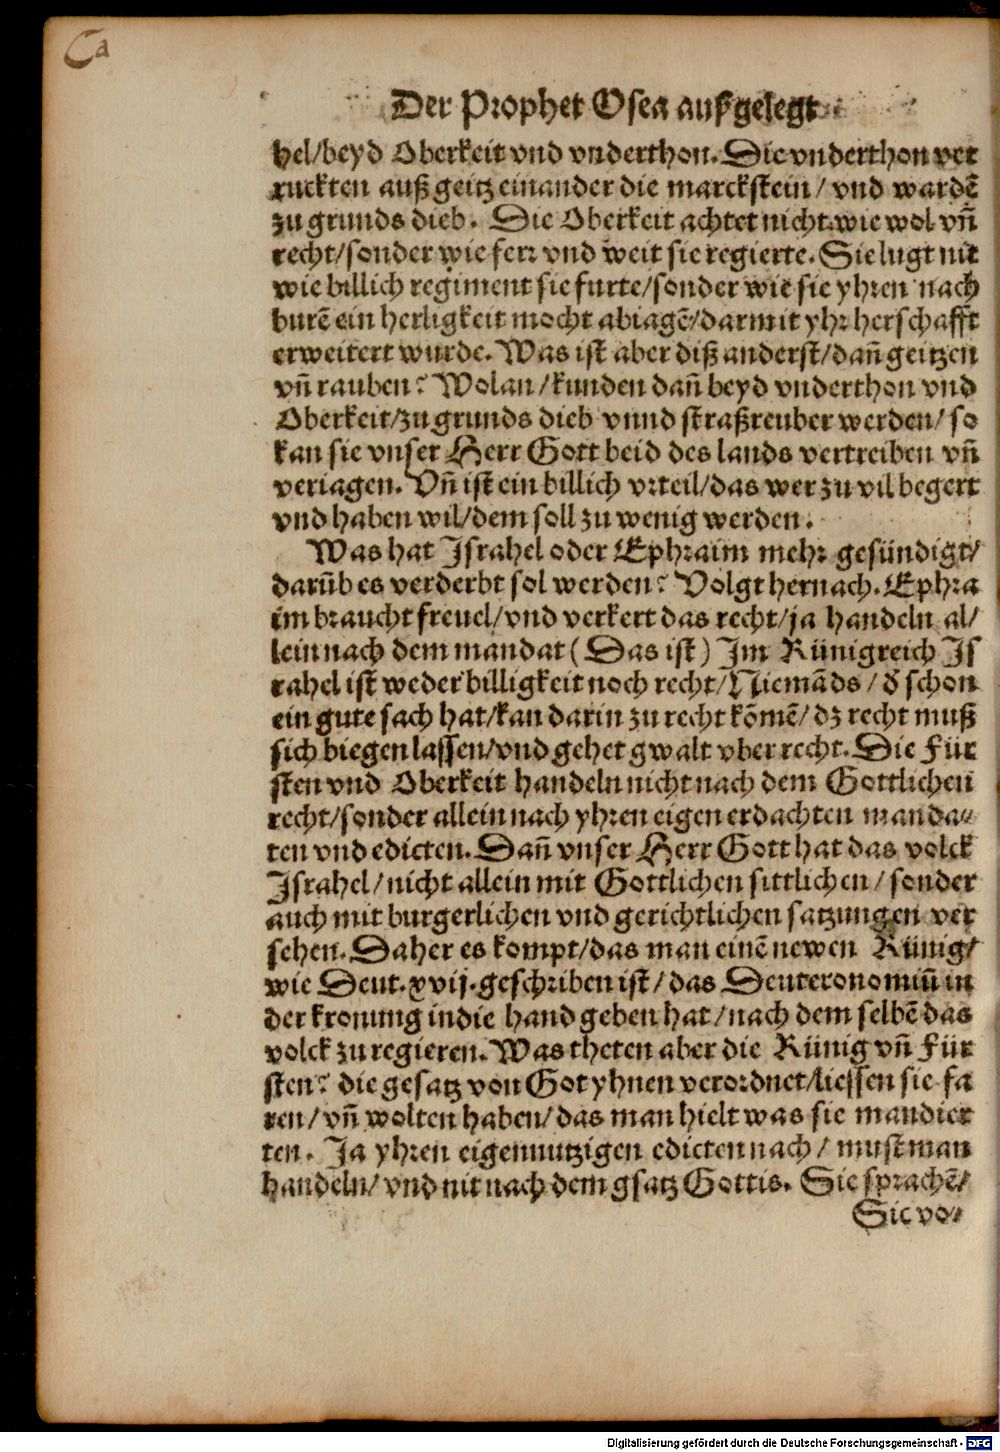 Ca
Der Prophet Osea außgelegt
hel/beyd Oberkeit vnd vnderthon. Die vnderthon ver
ruckten auß geitz einander die marckstein/ vnd wardē
zu grunds dieb. Die Oberkeit achtet nicht wie wol vñ
recht/sonder wie ferr vnd weit sie regierte. Sie lugt nit
wie billich regiment sie furte/sonder wie sie yhren nach
burē ein herligkeit mocht abiagē/darmit yhr herschafft
erweitert wurde. Was ist aber diß anderst/dañ geitzen
vñ rauben? Wolan/kunden dañ beyd vnderthon vnd
Oberkeit/zu grunds dieb vnnd straßreuber werden/so
kan sie vnser Herr Gott beid des lands vertreiben vñ
veriagen. Vñ ist ein billich vrteil/das wer zu vil begert
vnd haben wil/dem soll zu wenig werden.
Was hat Israhel oder Ephraim mehr gesündigt/
darūb es verderbt sol werden? Volgt hernach. Ephra
im braucht freuel/vnd verkert das recht/ja handeln al/
lein nach dem mandat (Das ist) Im Künigreich Is
rahel ist weder billigkeit noch recht/Niemāds/ d̄ schon
ein gute sach hat/kan darin zu recht kōmē/dz recht muß
sich biegen lassen/vnd gehet gwalt vber recht. Die Für
sten vnd Oberkeit handeln nicht nach dem Gottlichen
recht/sonder allein nach yhren eigen erdachten manda⸗
ten vnd edicten. Dañ vnser Herr Gott hat das volck
Israhel/nicht allein mit Gottlichen sittlichen/sonder
auch mit burgerlichen vnd gerichtlichen satzungen ver
sehen. Daher es kompt/das man einē newen Künig/
wie Deut. xvij. geschriben ist/das Deuteronomiū in
der kronung in die hand geben hat/nach dem selbē das
volck zu regieren. Was theten aber die Künig vñ Für
sten? die gesatz von Got yhnen verordnet/liessen sie fa
ren/vñ wolten haben/das man hielt was sie mandier
ten. Ja yhren eigennutzigen edicten nach/ must man
handeln/vnd nit nach dem gsatz Gottis. Sie sprachē/
Sie vo⸗
Digitalisierung gefördert durch die Deutsche Forschungsgemeinschaft - DFG